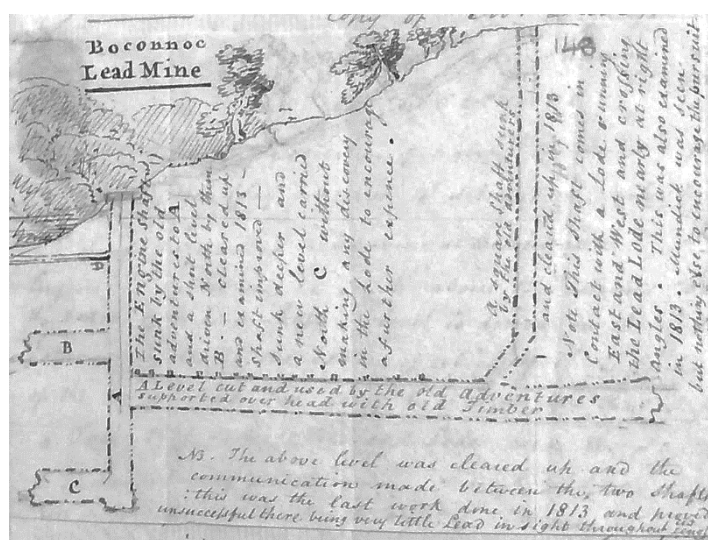 Copy of
Boconnoc
Lead Mine
148
The Engine Shaft
sunk by the old
adventures to A
and a short level
driven North by them
B. — cleared up
and examined 1813 —
shaft improved —
sunk deeper and
a new level carried
North C without
making any discovery
in the Lode to encourage
a further expence.
a square shaft sunk
by the old adventurers
and cleared up in 1813
Note This Shaft comes in
Contact with a Lode running
East and West and crossing
the Lead Lode nearly at right
angles. This was also examined
in 1813. Mundick was seen
but nothing else to encourage the pursuit
B
A
C
A Level cut and used by the old Adventures
supported over head with old Timber
NB. The above level was cleared up and the
communication made between the two shafts
: this was the last work done in 1813 and proved
unsuccessful there being very little Lead in sight throughout its